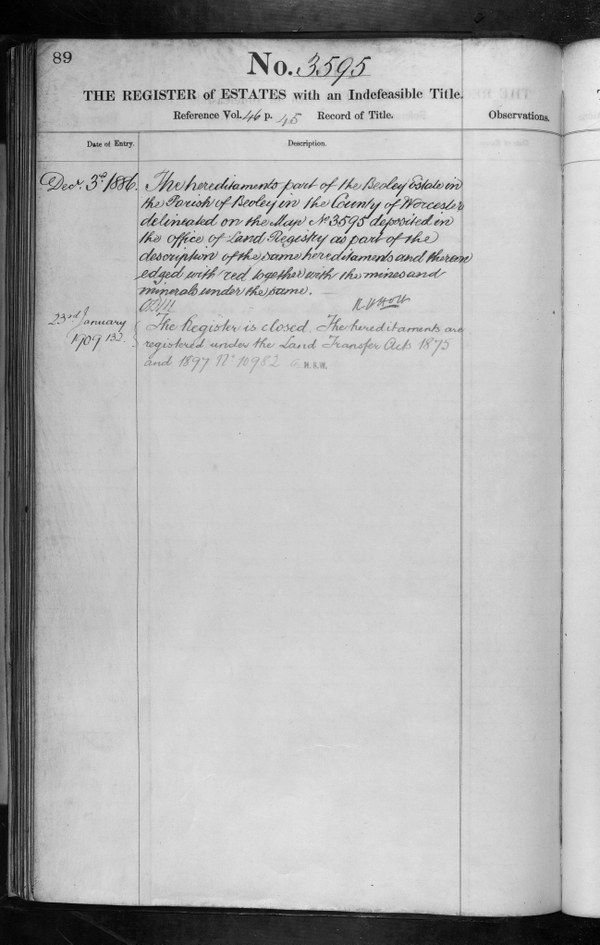 89
No. 3595
THE REGISTER of ESTATES with an Indefeasible Title.
Reference Vol. 46 p. 45 Record of Title.
Observations.
Date of Entry.
Description.
Decr. 3d. 1886.
The hereditaments part of the Beoley Estate in
the Parish of Beoley in the County of Worcester
delineated on the Map No 3595 deposited in
the office of Land Registry as part of the
description of the same hereditaments and therein
edged with red together with the mines and
minerals under the same.
R H Holt
23rd January
1909 132.
The Register is closed. The hereditaments are
registered under the Land Transfer Acts 1875
and 1897 No 10982